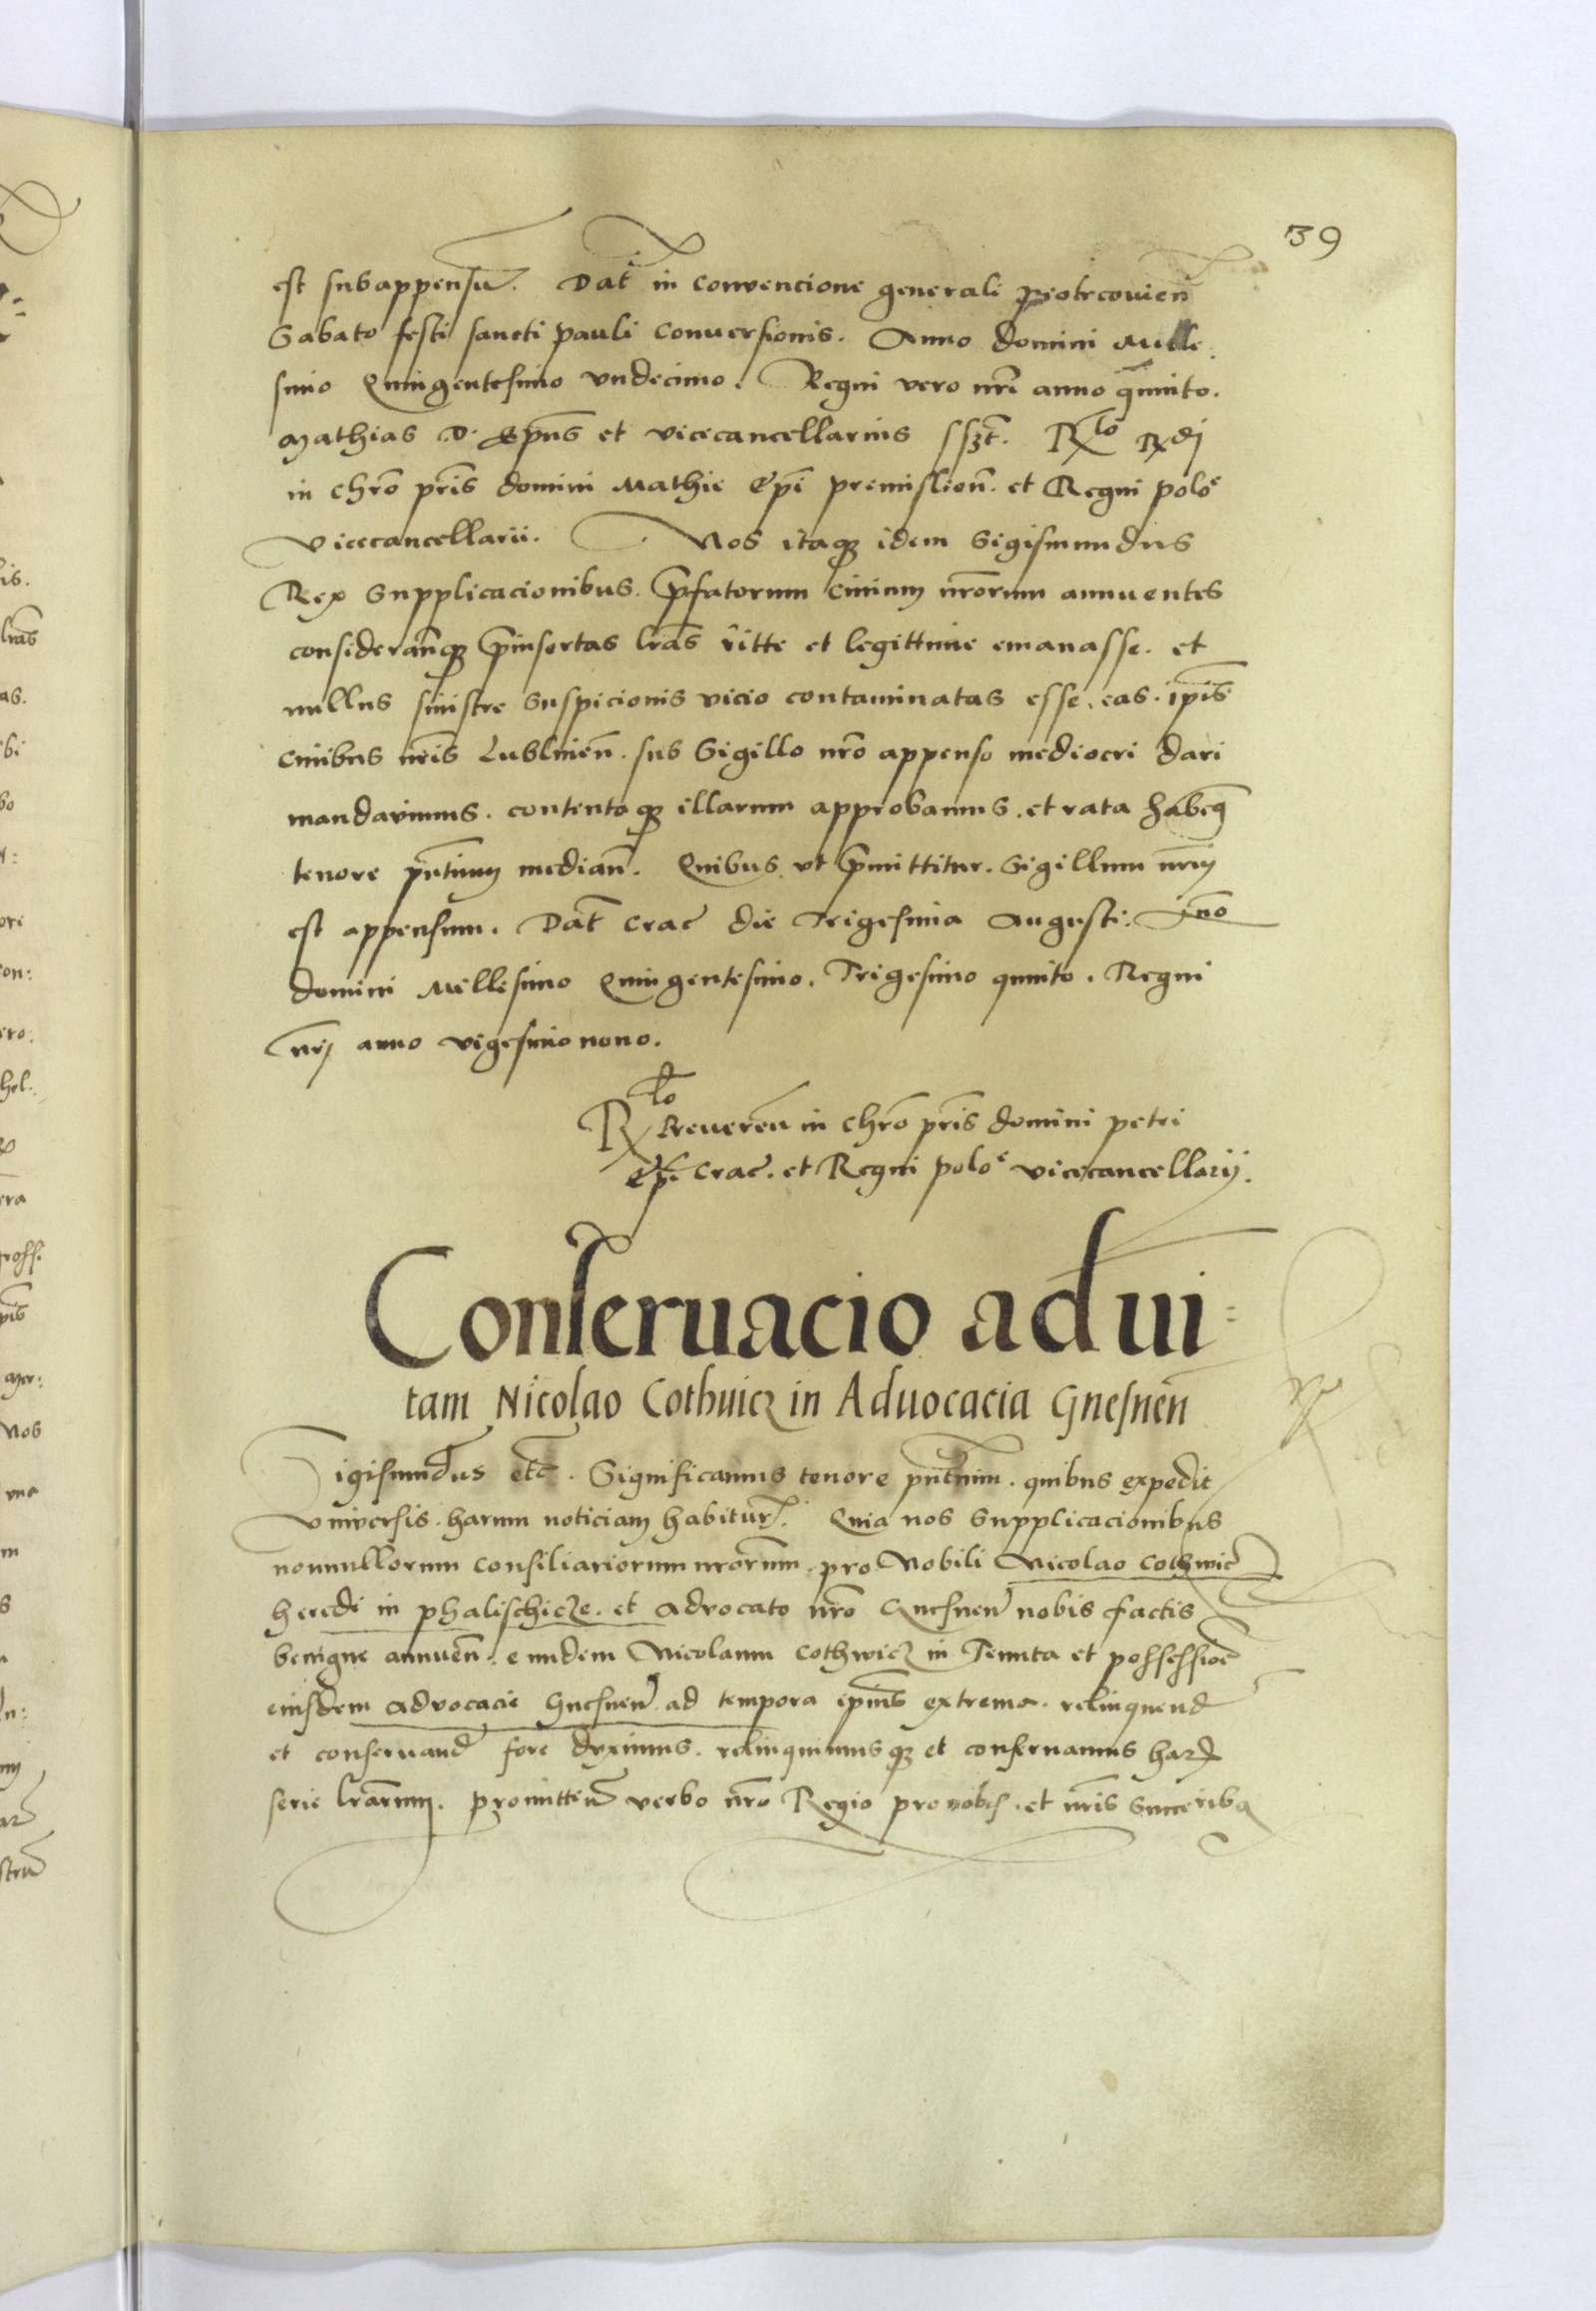 39
est subappensū. Dat̄ in convencione generali piotrcovien̄
Sabato festi sancti pauli conversionis. Anno domini Mille
simo Quingentesimo vndecimo. Regni vero nr̄i anno quinto.
Mathias D. Ep̄us et vicecancellarius sszt. Rlō Rdj
in chrō pr̄is domini Mathie Ep̄i premislien̄. et Regni polōe
vicecancellarii. Nos itaqȝ idem Sigismundus
Rex Supplicacionibus. p̄fatorum civium nr̄orum annuentes
consideran̄qȝ p̄insertas lr̄as ritte et legittime emanasse. et
nullus sinistre suspicionis vicio contaminatas esse. eas. ip̄is
civibus nr̄is Lublinen̄. sub Sigillo nr̄o appenso mediocri dari
mandavimus. contentaqȝ illarum approbamus. et rata habem9
tenore pn̄tium median̄. Quibus vt p̄mittitur. Sigillum nr̄m
est appensum. Dat̄ Crac̄ die Trigesima Augusti. Ann̄o
domini Millesimo Quingentesimo. Trigesimo quinto. Regni
nr̄j anno vigesimo nono.
Rlō Reveren̄ in chrō pr̄is domini petri
Ep̄i Crac̄. et Regni polōe vicecancellarij.
Conseruacio ad ui-
tam Nicolao Cothuicz in Aduocacia Gnesnen̄
Sigismundus etc̄. Significamus tenore pn̄tium. quibus expedit
vniversis. harum noticiam habitur̄. Quia nos Supplicacionibus
nonnullorum consiliariorum nr̄orum. pro Nobili Nicolao cothwicz
heredi in phalischicze. et advocato nr̄o Gnesnen̄ nobis factis
benigne annuen̄. eundem Nicolaum cothwicz in Tenuta et possessiōe
eiusdem advocacie Gnesnen̄. ad tempora ip̄ius extrema. relinquend̄
et conservand̄ fore duximus. relinquimusqȝ et conservamus har̄
serie lr̄arum. promitten̄ verbo nr̄o Regio pro nobis. et nr̄is Succribq